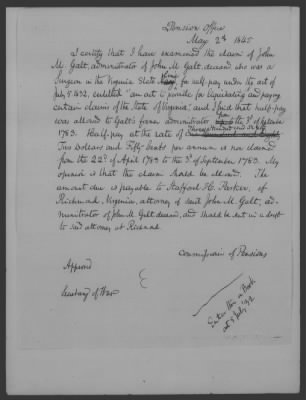 Pension Office
May 2d 1845
I certify that I have examined the claim of John
M. Galt, administrator of John M. Galt, deceased, who was a
Surgeon in the Virginia State line, for half-pay under the act of
July 5, 1832, entitled "an act to provide for liquidating and paying
certain claims of the State of Virginia", and I find that half-pay
was allowed to Galt's former administrator from the 3d of September
1783. Half-pay at the rate of Three Hundred and Sixty
Two Dollars and Fifty Cents per annum is now claimed
from the 22d of April 1783 to the 3d of September 1783. My
opinion is that the claim should be allowed. The
amount due is payable to Stafford H. Parker, of
Richmond, Virginia, attorney of said John M. Galt, ad-
ministrator of John M. Galt deceased, and should be sent in a draft
to said attorney at Richmond.
Commissioner of Pensions
Approved
Secretary of War
Enter this in Book
act 5 July '32